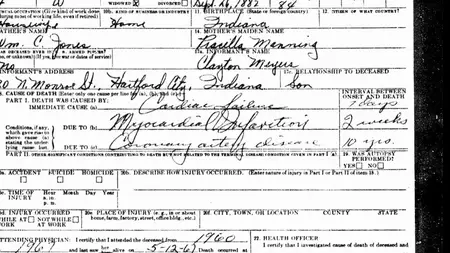 W WIDOWED DIVORCED Sept. 26, 1882 84
OCCUPATION (Give kind of work done 10b. KIND OF BUSINESS OR INDUSTRY 11. BIRTHPLACE (State or foreign country) 12. CITIZEN OF WHAT COUNTRY?
most of working life, even if retired)
Housewife Home Indiana
14. MOTHER'S MAIDEN NAME
Wm. C. Jones Manning
INFORMANT'S NAME
no Clayton Meyer
INFORMANT'S ADDRESS 17c. RELATIONSHIP TO DECEASED
0 N. Monroe St. Hartford City, Indiana Son
18. CAUSE OF DEATH (Enter only one cause per line for (a), (b), and (c).) INTERVAL BETWEEN
PART I. DEATH WAS CAUSED BY: ONSET AND DEATH
IMMEDIATE CAUSE (a) Cardiac failure days
Conditions, if any, DUE TO (b) Myocardial Infarction 2 weeks
which gave rise to
above cause (a)
stating the under-
lying cause last. DUE TO (c) Coronary artery disease 10 yrs.
PART II. OTHER SIGNIFICANT CONDITIONS CONTRIBUTING TO DEATH BUT NOT RELATED TO THE TERMINAL DISEASE CONDITION GIVEN IN PART I (a) 19. WAS AUTOPSY
PERFORMED?
YES NO
ACCIDENT SUICIDE HOMICIDE 20b. DESCRIBE HOW INJURY OCCURRED. (Enter nature of injury in Part I or Part II of item 18.)
TIME OF Hour Month Day Year
INJURY a. m.
p. m.
INJURY OCCURRED 20e. PLACE OF INJURY (e. g., in or about 20f. CITY, TOWN, OR LOCATION COUNTY STATE
WHILE AT NOT WHILE home, farm, factory, street, office bldg., etc.)
WORK AT WORK
ATTENDING PHYSICIAN: I certify that I attended the deceased from 1960 22. HEALTH OFFICER
1967 and last saw alive on 5-12-67 Death occurred at I certify that I investigated cause of death of deceased and